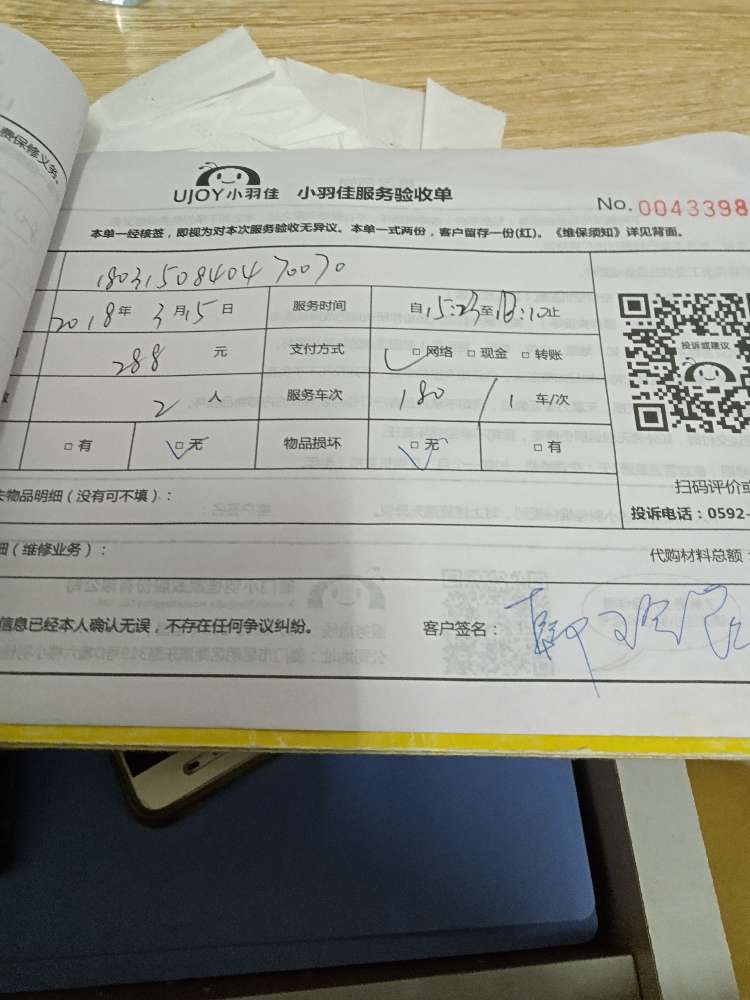 费保修义务。
UJOY小羽佳 小羽佳服务验收单
No. 0043398
本单一经核签，即视为对本次服务验收无异议。本单一式两份，客户留存一份(红)。《维保须知》详见背面。
1803150840470070
2018年3月15日 服务时间 自15:23至18:10止
288 元 支付方式 □网络 □现金 □转账
2 人 服务车次 180 / 1 车/次
□有 □无 物品损坏 □无 □有
投诉或建议
扫码评价或
失物品明细（没有可不填）：
投诉电话：0592-
细（维修业务）：
代购材料总额：
信息已经本人确认无误，不存在任何争议纠纷。 客户签名：